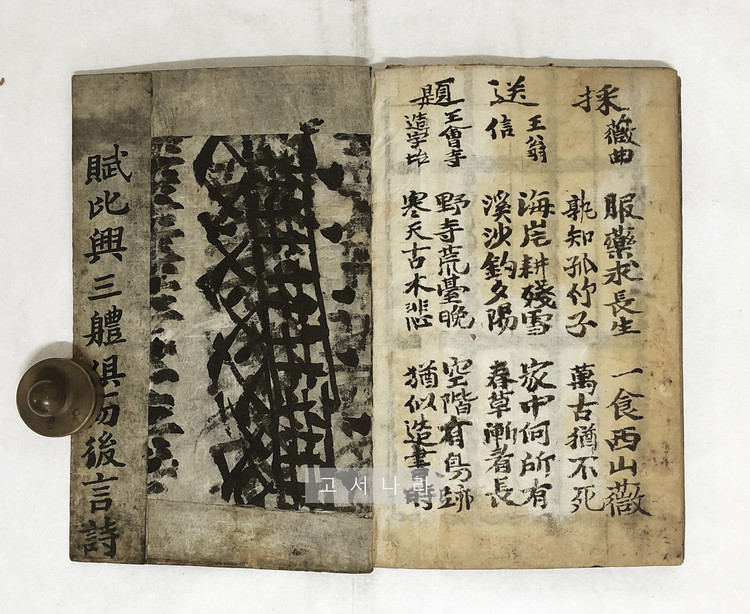 採薇曲
服藥求長生
孰知孤竹子
一食西山薇
萬古猶不死
送王翁信
海岸耕殘雪
溪沙釣夕陽
家中何所有
春草漸看長
題王會寺造字坮
野寺荒臺晚
寒天古木悲
空階有鳥跡
猶似造書時
賦比興三體俱而後言詩
고서나라